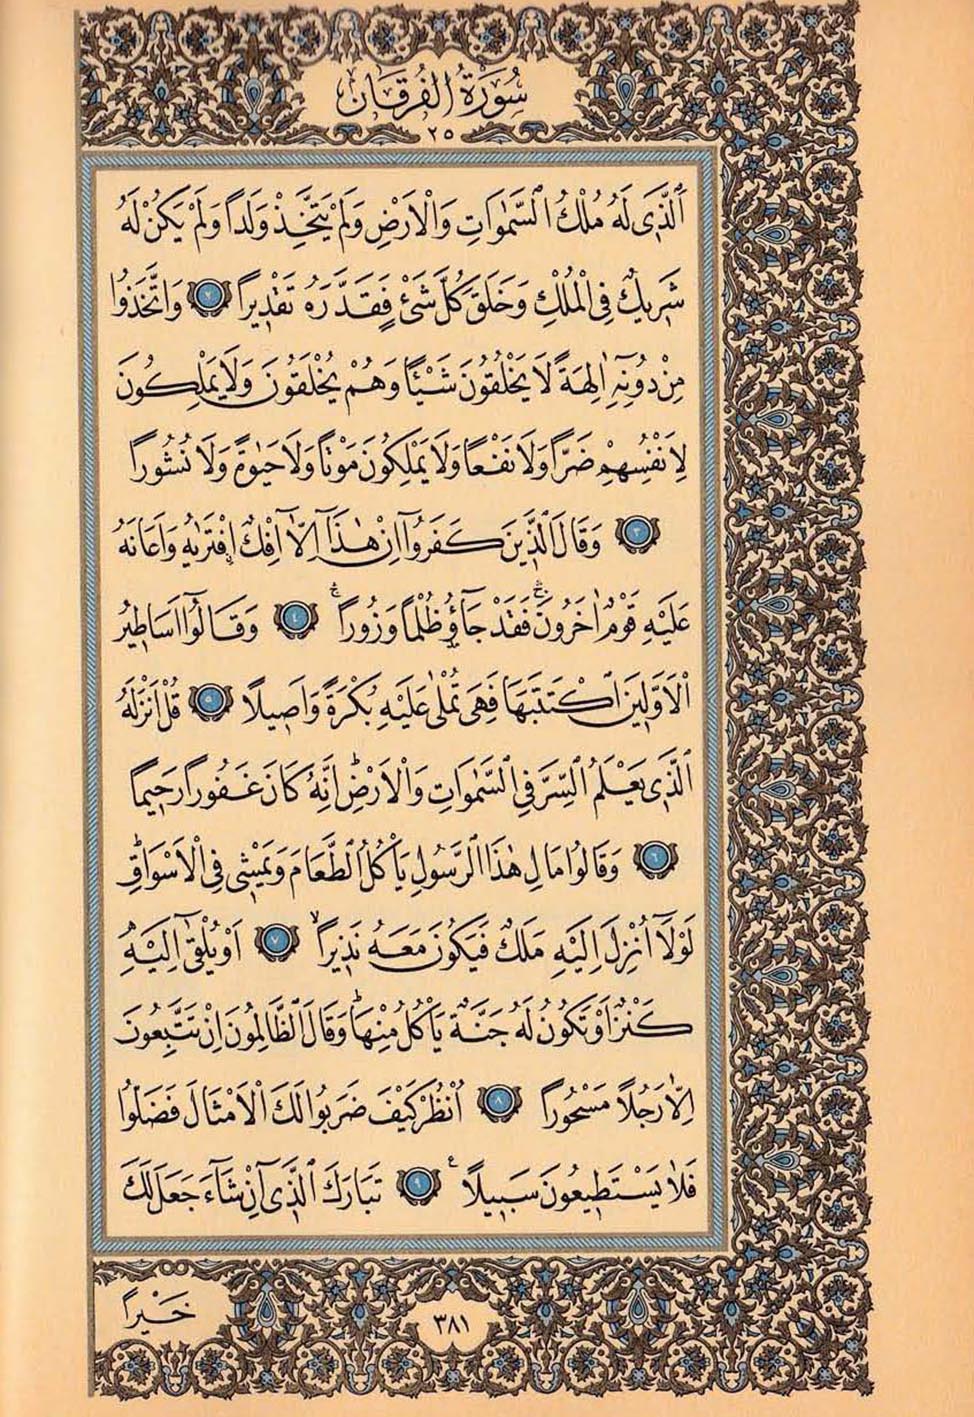 سُورَةُ الْفُرْقَانِ
٢٥
اَلَّذ۪ى لَهُ مُلْكُ السَّمٰوَاتِ وَالْاَرْضِ وَلَمْ يَتَّخِذْ وَلَداً وَلَمْ يَكُنْ لَهُ
شَر۪يكٌ فِى الْمُلْكِ وَخَلَقَ كُلَّ شَىْءٍ فَقَدَّرَهُ تَقْد۪يراً ﴿٢﴾ وَاتَّخَذُوا
مِنْ دُونِه۪ٓ اٰلِهَةً لَا يَخْلُقُونَ شَيْـًٔا وَهُمْ يُخْلَقُونَ وَلَا يَمْلِكُونَ
لِاَنْفُسِهِمْ ضَراًّ وَلَا نَفْعاً وَلَا يَمْلِكُونَ مَوْتاً وَلَا حَيٰوةً وَلَا نُشُوراً
﴿٣﴾ وَقَالَ الَّذ۪ينَ كَفَرُٓوا اِنْ هٰذَٓا اِلَّٓا اِفْكٌۨ افْتَرٰيهُ وَاَعَانَهُ
عَلَيْهِ قَوْمٌ اٰخَرُونَۚۛ فَقَدْ جَٓاؤُ۫ ظُلْماً وَزُوراًۚۛ ﴿٤﴾ وَقَالُٓوا اَسَاط۪يرُ
الْاَوَّل۪ينَ اكْتَتَبَهَا فَهِىَ تُمْلٰى عَلَيْهِ بُكْرَةً وَاَص۪يلاً ﴿٥﴾ قُلْ اَنْزَلَهُ
الَّذ۪ى يَعْلَمُ السِّرَّ فِى السَّمٰوَاتِ وَالْاَرْضِۜ اِنَّهُ كَانَ غَفُوراً رَح۪يماً
﴿٦﴾ وَقَالُوا مَالِ هٰذَا الرَّسُولِ يَأْكُلُ الطَّعَامَ وَيَمْش۪ى فِى الْاَسْوَاقِۜ
لَوْلَٓا اُنْزِلَ اِلَيْهِ مَلَكٌ فَيَكُونَ مَعَهُ نَذ۪يراًۙ ﴿٧﴾ اَوْ يُلْقٰٓى اِلَيْهِ
كَنْزٌ اَوْ تَكُونُ لَهُ جَنَّةٌ يَأْكُلُ مِنْهَاۜ وَقَالَ الظَّالِمُونَ اِنْ تَتَّبِعُونَ
اِلَّا رَجُلاً مَسْحُوراً ﴿٨﴾ اُنْظُرْ كَيْفَ ضَرَبُوا لَكَ الْاَمْثَالَ فَضَلُّوا
فَلَا يَسْتَط۪يعُونَ سَب۪يلاًۚ ﴿٩﴾ تَبَارَكَ الَّذ۪ٓى اِنْ شَٓاءَ جَعَلَ لَكَ
خَيْراً
٣٨١